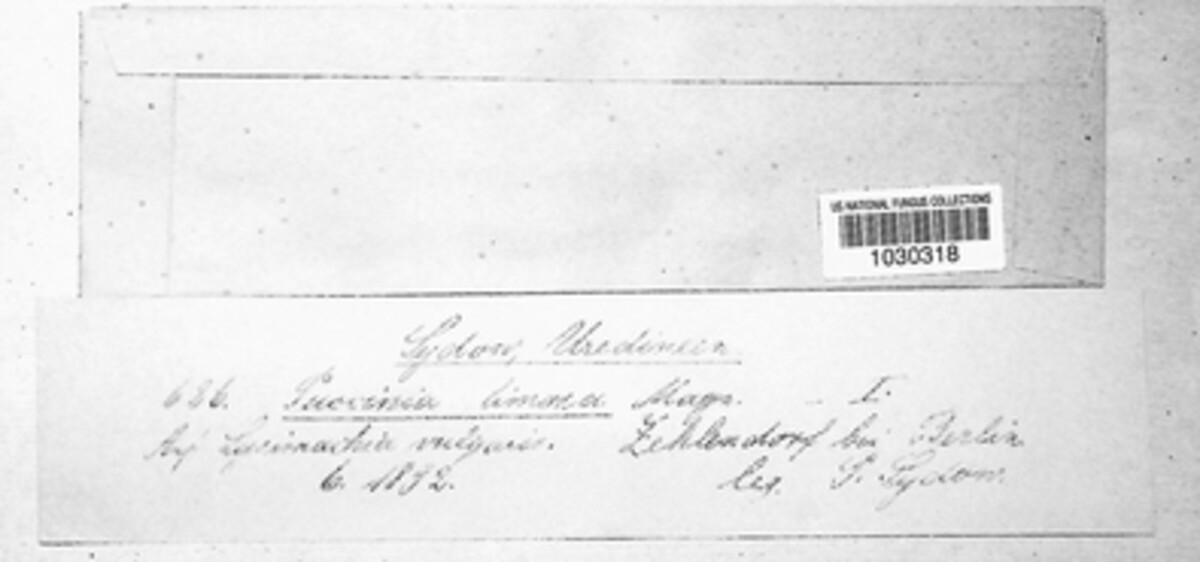 US NATIONAL FUNGUS COLLECTIONS
1030318
Sydow, Uredineen
626. Puccinia limosae Magn. - I.
Auf Lysimachia vulgaris. Zehlendorf bei Berlin
6. 1892. leg. P. Sydow.